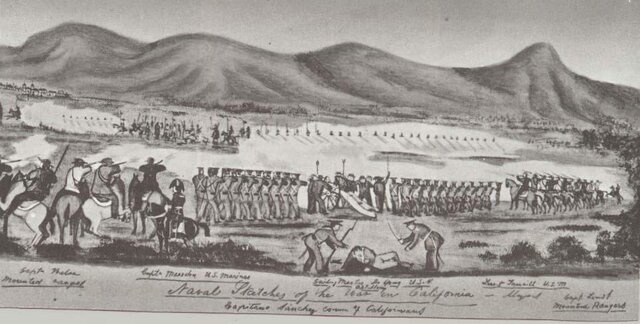 Capt. Weber Capt. Marston U.S. Marines Sailing Master De Young U.S.N Lieut Tansill U.S.M. Capt.
Mounted Artillery Mounted Rangers
Naval Sketches of the War in California —
Capitano Sanchez Californians